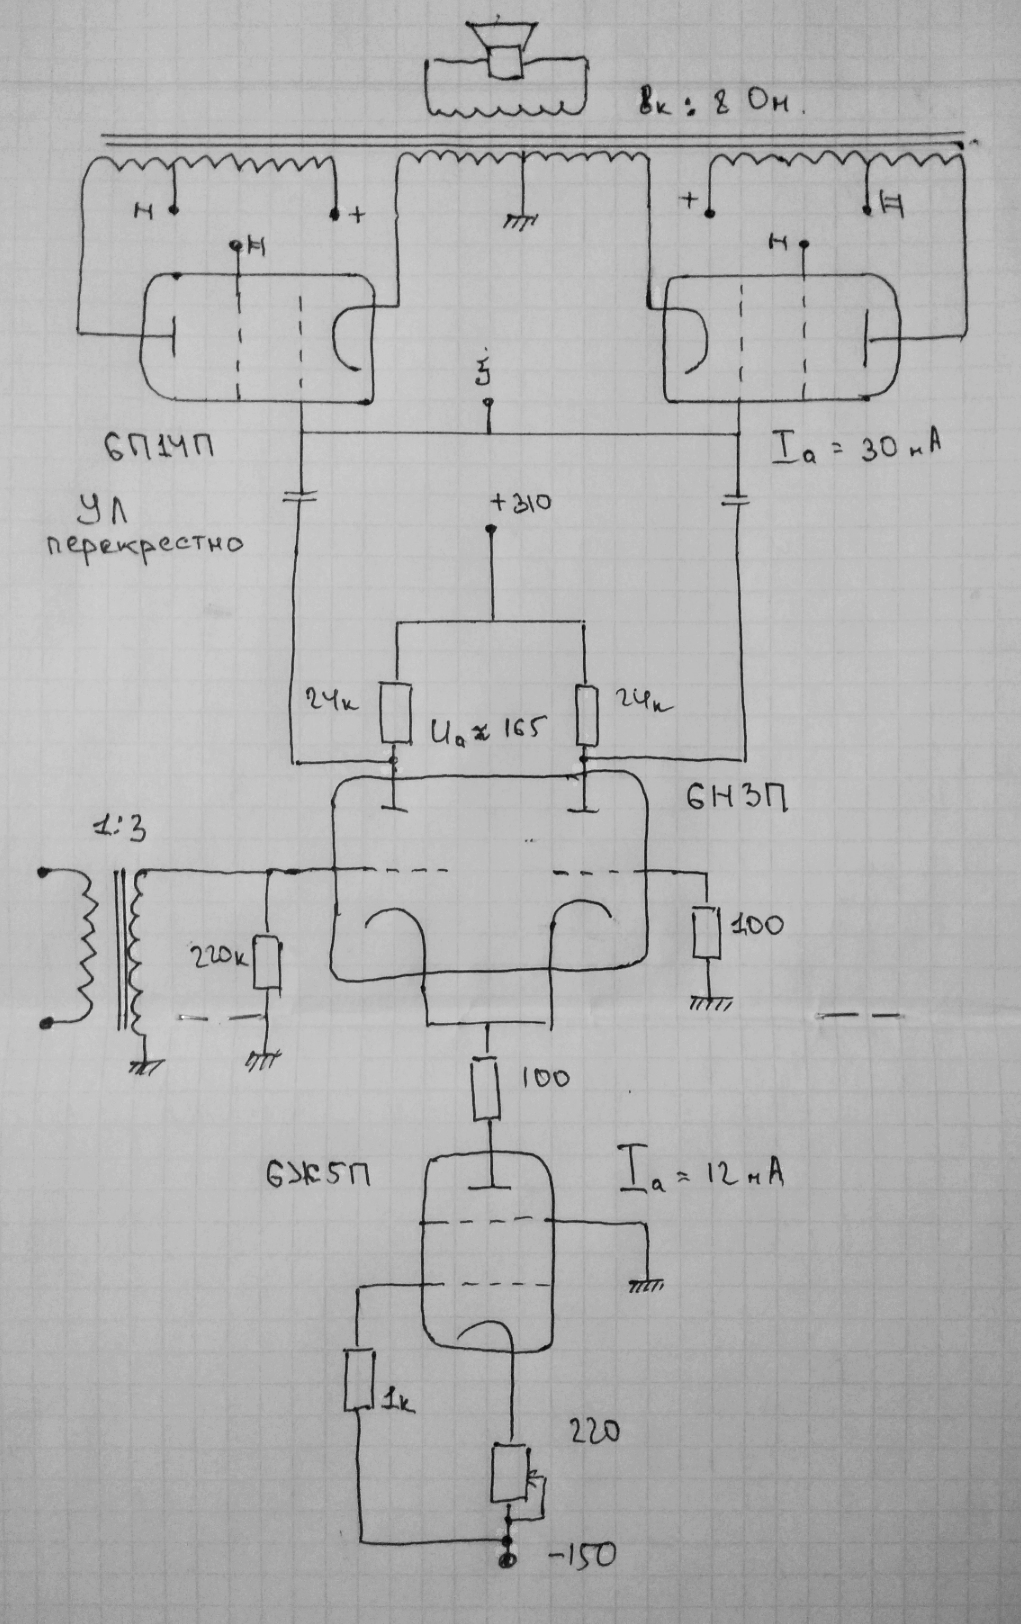 8к : 8 Ом.
Н
+
+
Н
Н
Н
6П14П
Ia = 30 мА
УЛ
перекрестно
+310
24к
24к
Ua ≈ 165
6Н3П
1:3
220к
100
100
6Ж5П
Ia = 12 мА
1к
220
-150